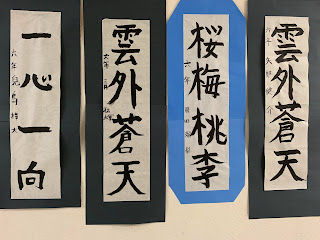 雲外蒼天
六年
桜梅桃李
六年
雲外蒼天
六年
一心一向
六年